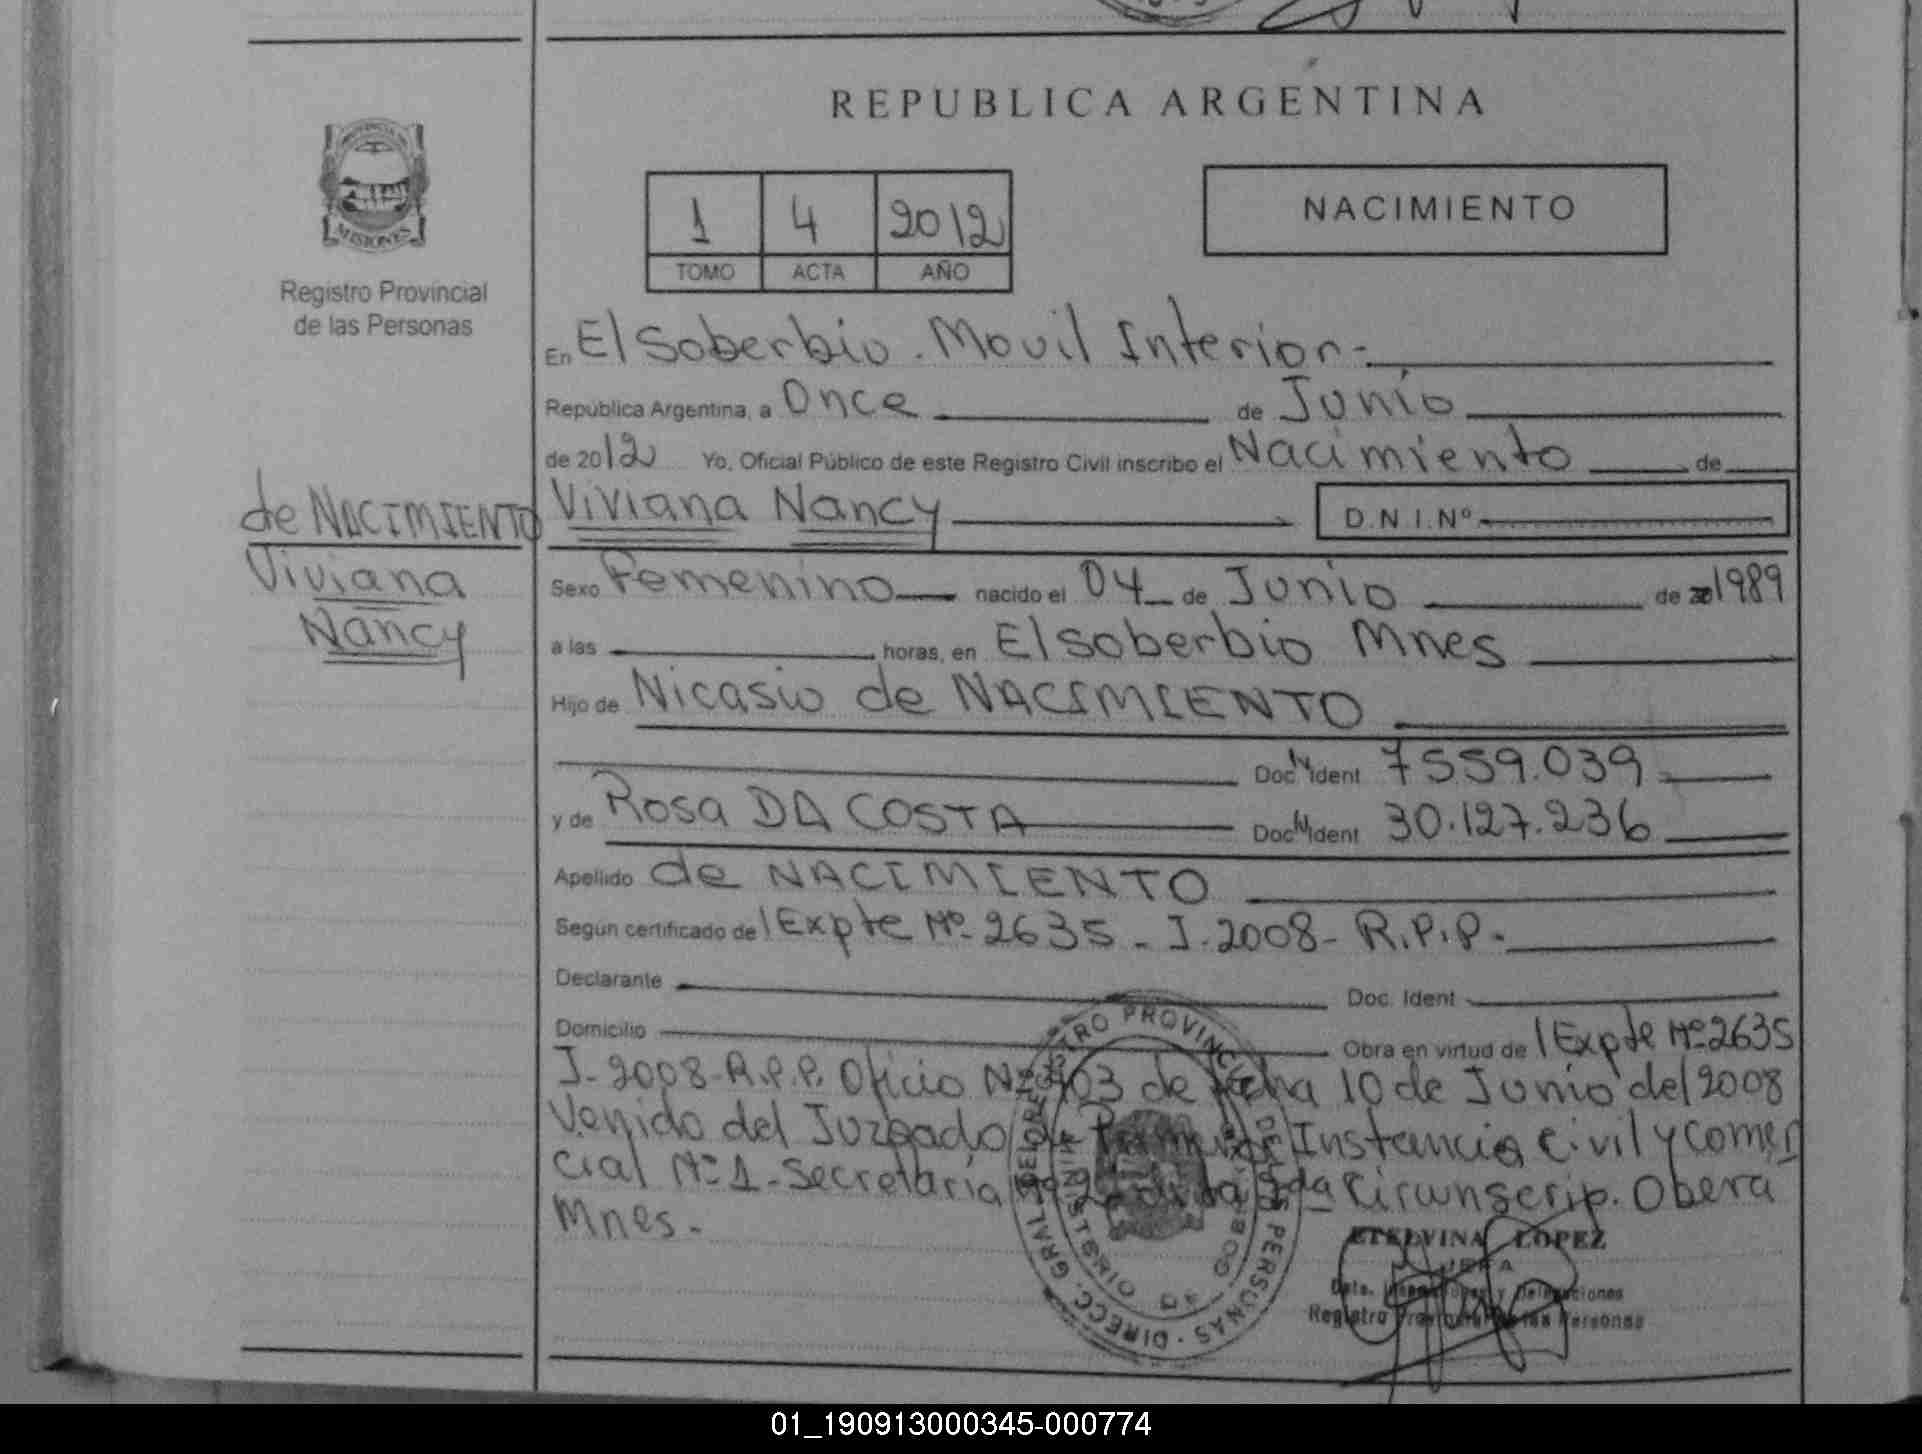 REPUBLICA ARGENTINA
PROVINCIA DE
MISIONES
Registro Provincial
de las Personas
1 4 2012
TOMO ACTA AÑO
NACIMIENTO
En El Soberbio. Movil Interior-
República Argentina, a Once de Junio
de 2012 Yo, Oficial Público de este Registro Civil inscribo el Nacimiento de
de NACIMIENTO
Viviana
Nancy
Viviana Nancy D.N.I.Nº
Sexo Femenino nacido el 04 de Junio de 1989
a las horas, en El soberbio Mnes
Hijo de Nicasio de NACIMIENTO
Doc. Ident 7559.039
y de Rosa DA COSTA Doc. Ident 30.127.236
Apellido de NACIMIENTO
Según certificado de Expte Nº 2635 - J. 2008 - R.P.P.
Declarante Doc. Ident
Domicilio Obra en virtud de Expte Nº 2635
J-2008-R.P.P. Oficio Nº 03 de fecha 10 de Junio del 2008
Venido del Juzgado de Primera Instancia Civil y Comer
cial Nº 1 - Secretaría 2da Circunscrip. Oberá
Mnes.-
DIRECC. GRAL DEL REGISTRO PROVINCIAL DE LAS PERSONAS
MINISTERIO DE GOB
ETELVINA LOPEZ
JEFA
Dpto. Inspecciones y Delegaciones
Registro Provincial de las Personas
01_190913000345-000774